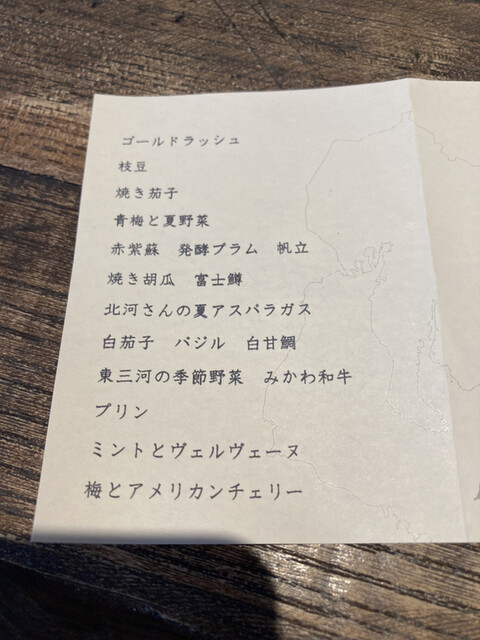 ゴールドラッシュ
枝豆
焼き茄子
青梅と夏野菜
赤紫蘇　発酵プラム　帆立
焼き胡瓜　富士鱒
北河さんの夏アスパラガス
白茄子　バジル　白甘鯛
東三河の季節野菜　みかわ和牛
プリン
ミントとヴェルヴェーヌ
梅とアメリカンチェリー